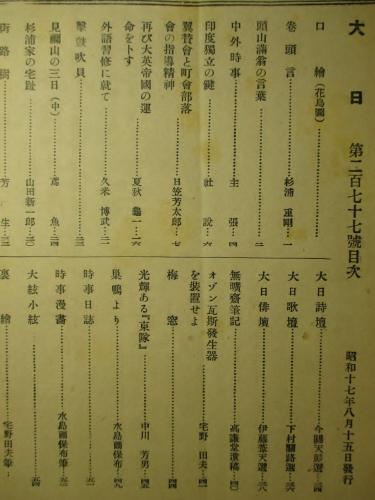 大日 第二百七十七號目次
昭和十七年八月十五日發行
口繪(花鳥圖)
卷頭言……杉浦重剛…一
頭山滿翁の言葉……二
中外時事……主張…四
印度獨立の鍵……社說…六
翼贊會と町會部落
會の指導精神……日笠芳太郎…七
再び大英帝國の運
命を卜す……夏秋龜一…一六
外語習修に就て……久米博武…二
擊鼓吹貝……三
見禰山の三日(中)……鳶魚…
杉浦家の宅趾……山田新一郎…三〇
街路樹……芳生…三
大日詩壇……今關天彭選…
大日歌壇……下村
大日俳壇……伊藤葦天選…
無曠齋筆記……高
オゾン瓦斯發生器
を裝置せよ……宅野田夫…
梅窓……四
光輝ある『東隊』……中川芳男…
巢鴨より……水島爾保布…四九
時事日誌……
時事漫畫……水島爾保布筆…
大絃小絃……
裏繪……宅野田夫筆…